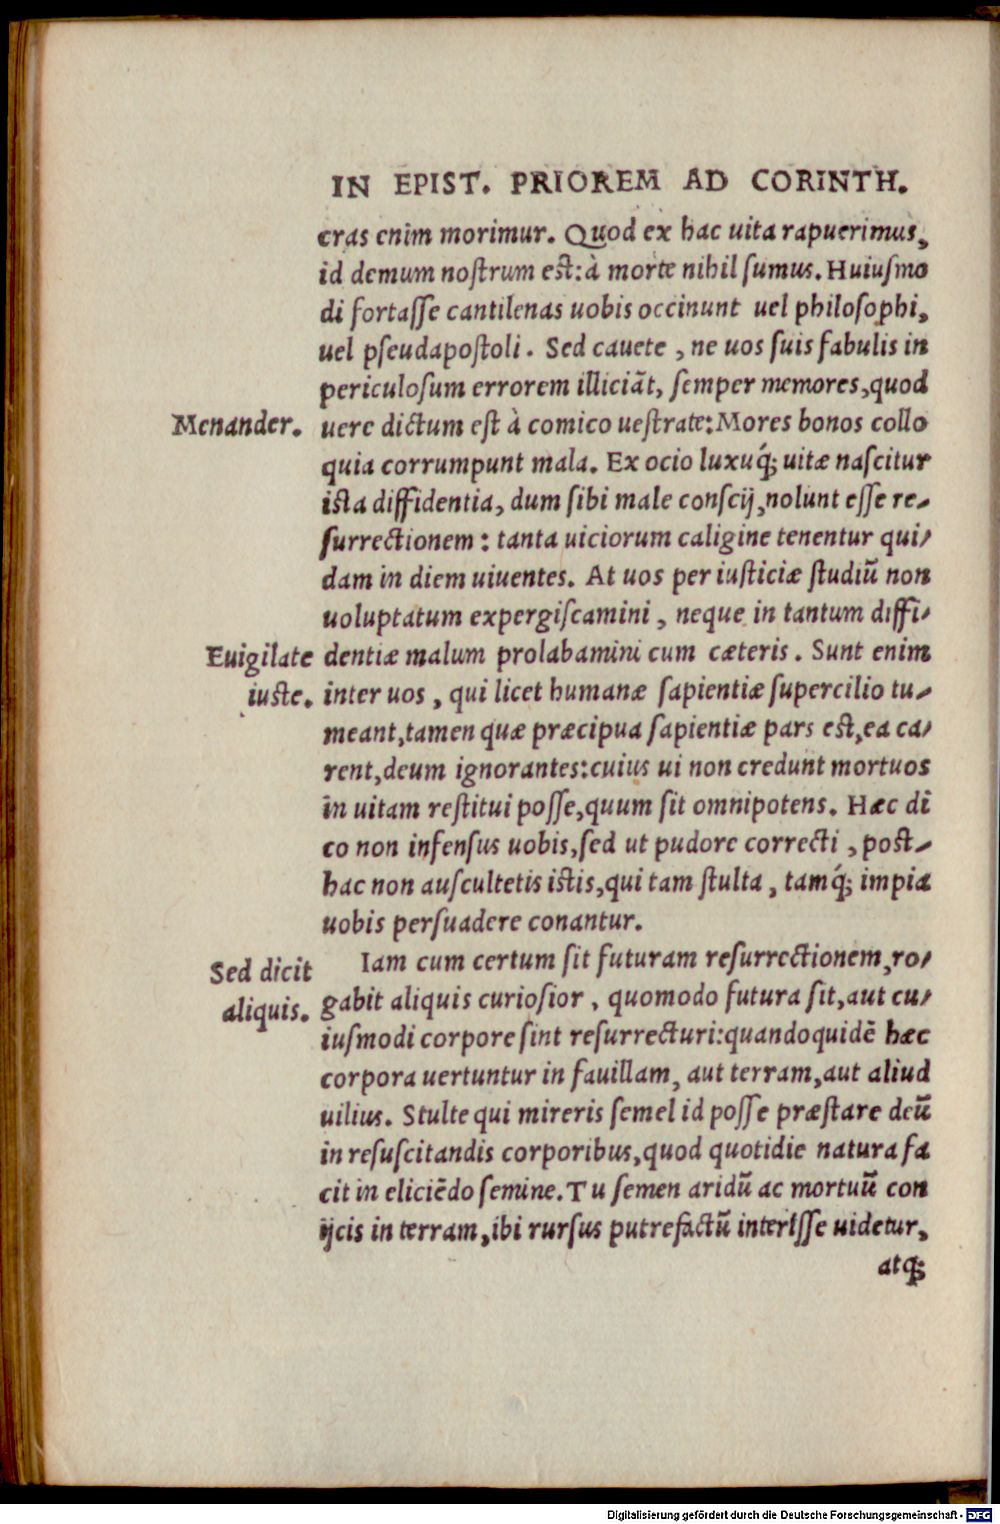 IN EPIST. PRIOREM AD CORINTH.
cras enim morimur. Quod ex hac uita rapuerimus,
id demum noſtrum est: à morte nihil ſumus. Huiuſmo
di fortaſſe cantilenas uobis occinunt uel philoſophi,
uel pſeudapoſtoli. Sed cauete, ne uos ſuis fabulis in
periculoſum errorem illiciāt, ſemper memores, quod
Menander. uere dictum eſt à comico ueſtrate: Mores bonos collo
quia corrumpunt mala. Ex ocio luxuq́; uitæ naſcitur
ista diffidentia, dum ſibi male conſcij, nolunt eſſe re-
ſurrectionem: tanta uiciorum caligine tenentur qui-
dam in diem uiuentes. At uos per iuſticiæ ſtudiū non
uoluptatum expergiſcamini, neque in tantum diffi-
Euigilate dentiæ malum prolabamini cum cæteris. Sunt enim
iuste. inter uos, qui licet humanæ ſapientiæ ſupercilio tu-
meant, tamen quæ præcipua ſapientiæ pars est, ea ca-
rent, deum ignorantes: cuius ui non credunt mortuos
in uitam reſtitui poſſe, quum ſit omnipotens. Hæc di
co non infenſus uobis, ſed ut pudore correcti, post-
hac non auſcultetis istis, qui tam ſtulta, tamq́; impia
uobis perſuadere conantur.
Sed dicit Iam cum certum ſit futuram reſurrectionem, ro-
aliquis. gabit aliquis curioſior, quomodo futura ſit, aut cu-
iuſmodi corpore ſint reſurrecturi: quandoquidē hæc
corpora uertuntur in fauillam, aut terram, aut aliud
uilius. Stulte qui mireris ſemel id poſſe præſtare deū
in reſuſcitandis corporibus, quod quotidie natura fa
cit in eliciēdo ſemine. Tu ſemen aridū ac mortuū con
ijcis in terram, ibi rurſus putrefactū interiſſe uidetur,
atq;
Digitalisierung gefördert durch die Deutsche Forschungsgemeinschaft - DFG